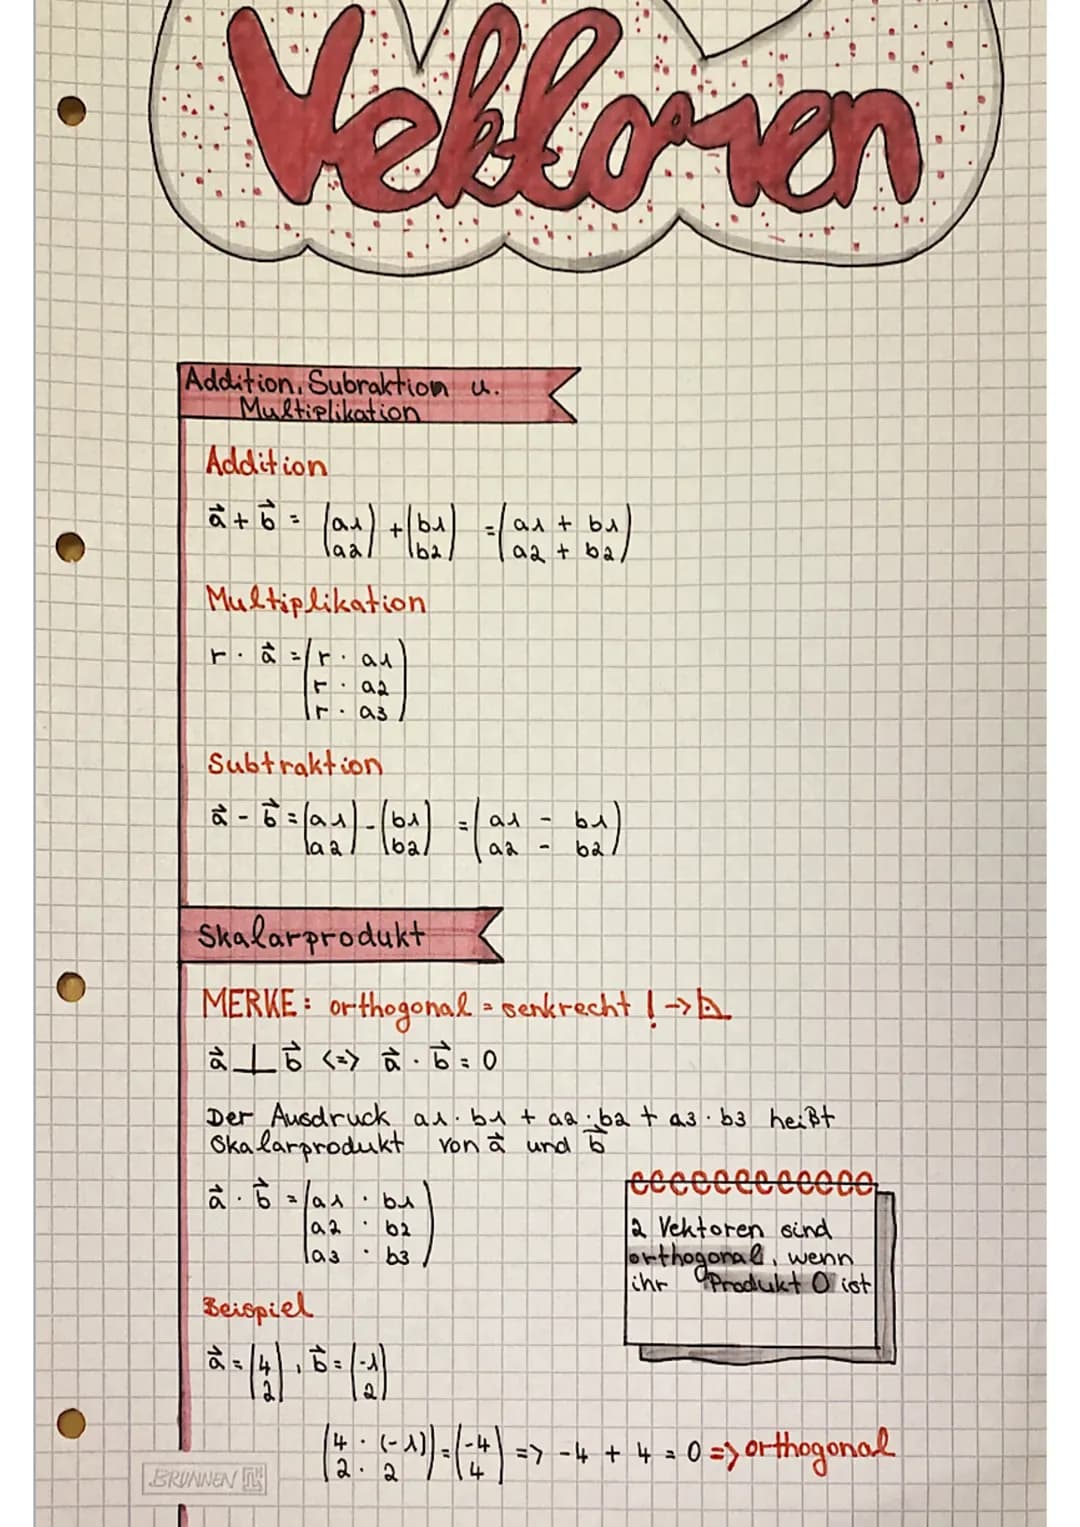 Vektoren
Addition, Subraktion u.
Multiplikation
Addition
a⃗ + b⃗ = (a1 a2) + (b1 b2) = (a1 + b1 a2 + b2)
Multiplikation
r · a⃗ = (r · a1
r · a2
r · a3)
Subtraktion
a⃗ - b⃗ = (a1 a2) - (b1 b2) = (a1 - b1 a2 - b2)
Skalarprodukt
MERKE: orthogonal = senkrecht ! ->
a⃗ ⊥ b⃗ <=> a⃗ · b⃗ = 0
Der Ausdruck a1·b1 + a2·b2 + a3·b3 heißt
Skalarprodukt von a⃗ und b⃗
a⃗ · b⃗ = (a1 · b1
a2 · b2
a3 · b3)
2 Vektoren sind
orthogonal, wenn
ihr Produkt 0 ist
Beispiel
a⃗ = (4 2), b⃗ = (-1 2)
(4 · (-1) 2 · 2) = (-4 4) => -4 + 4 = 0 => orthogonal
BRUNNEN